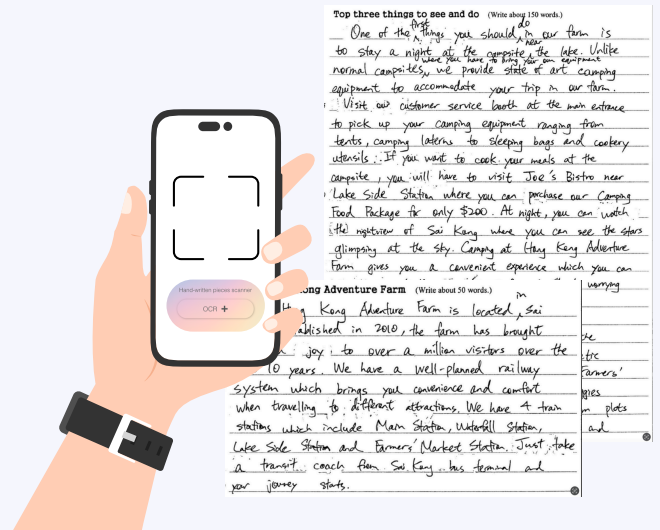 Top three things to see and do (Write about 150 words.)
first do
One of the things you should in our farm is
near
to stay a night at the campsite the lake. Unlike
where you have to bring your own equipment
normal campsites, we provide state of art camping
equipment to accommodate your trip in our farm.
Visit our customer service booth at the main entrance
to pick up your camping equipment ranging from
tents, camping laterns to sleeping bags and cookery
utensils. If you want to cook your meals at the
campsite, you will have to visit Joe's Bistro near
Lake Side Station where you can purchase our Camping
Food Package for only $200. At night, you can watch
the nightview of Sai Kong where you can see the stars
glimpsing at the sky. Camping at Hong Kong Adventure
Farm gives you a convenient experience which you can
worrying
Farmers'
plots
and
ong Adventure Farm (Write about 50 words.)
in
Kong Adventure Farm is located Sai
ablished in 2010, the farm has brought
joy to over a million visitors over the
10 years. We have a well-planned railway
system which brings you convenience and comfort
when travelling to different attractions. We have 4 train
stations which include Main Station, Waterfall Station,
Lake Side Station and Farmers' Market Station. Just take
a transit coach from Sai Kong bus terminal and
your jouney starts.
Hand-written pieces scanner
OCR +